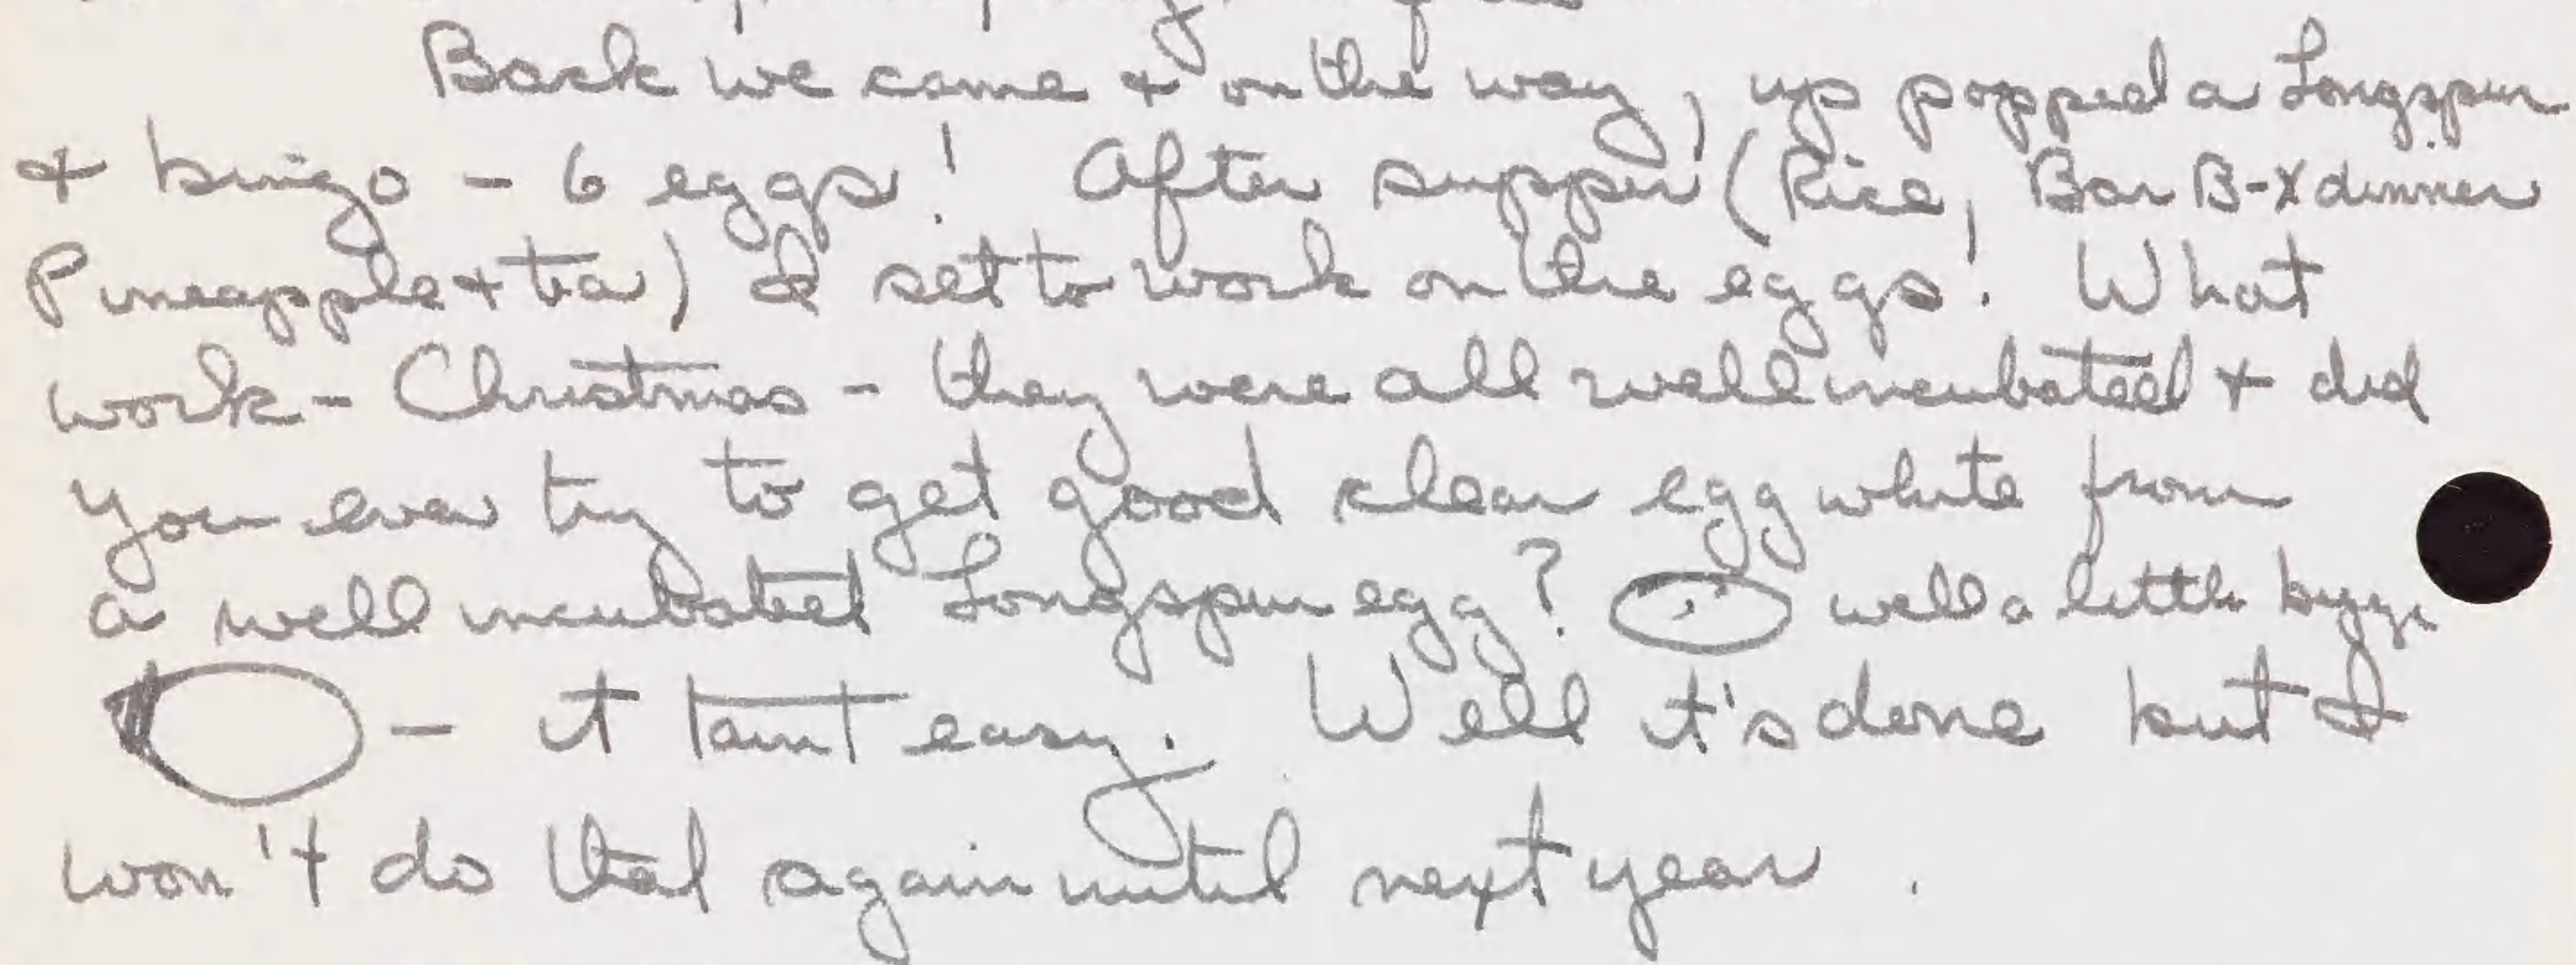 Back we came & on the way, up popped a Longspur
& bingo - 6 eggs! After supper (Rice, Bar B-X dinner
Pineapple & tea) I set to work on the eggs! What
work - Christmas - they were all well incubated & did
you ever try to get good clear egg white from
a well incubated Longspur egg? well a little
- it taint easy. Well it's done but I
won't do that again until next year.